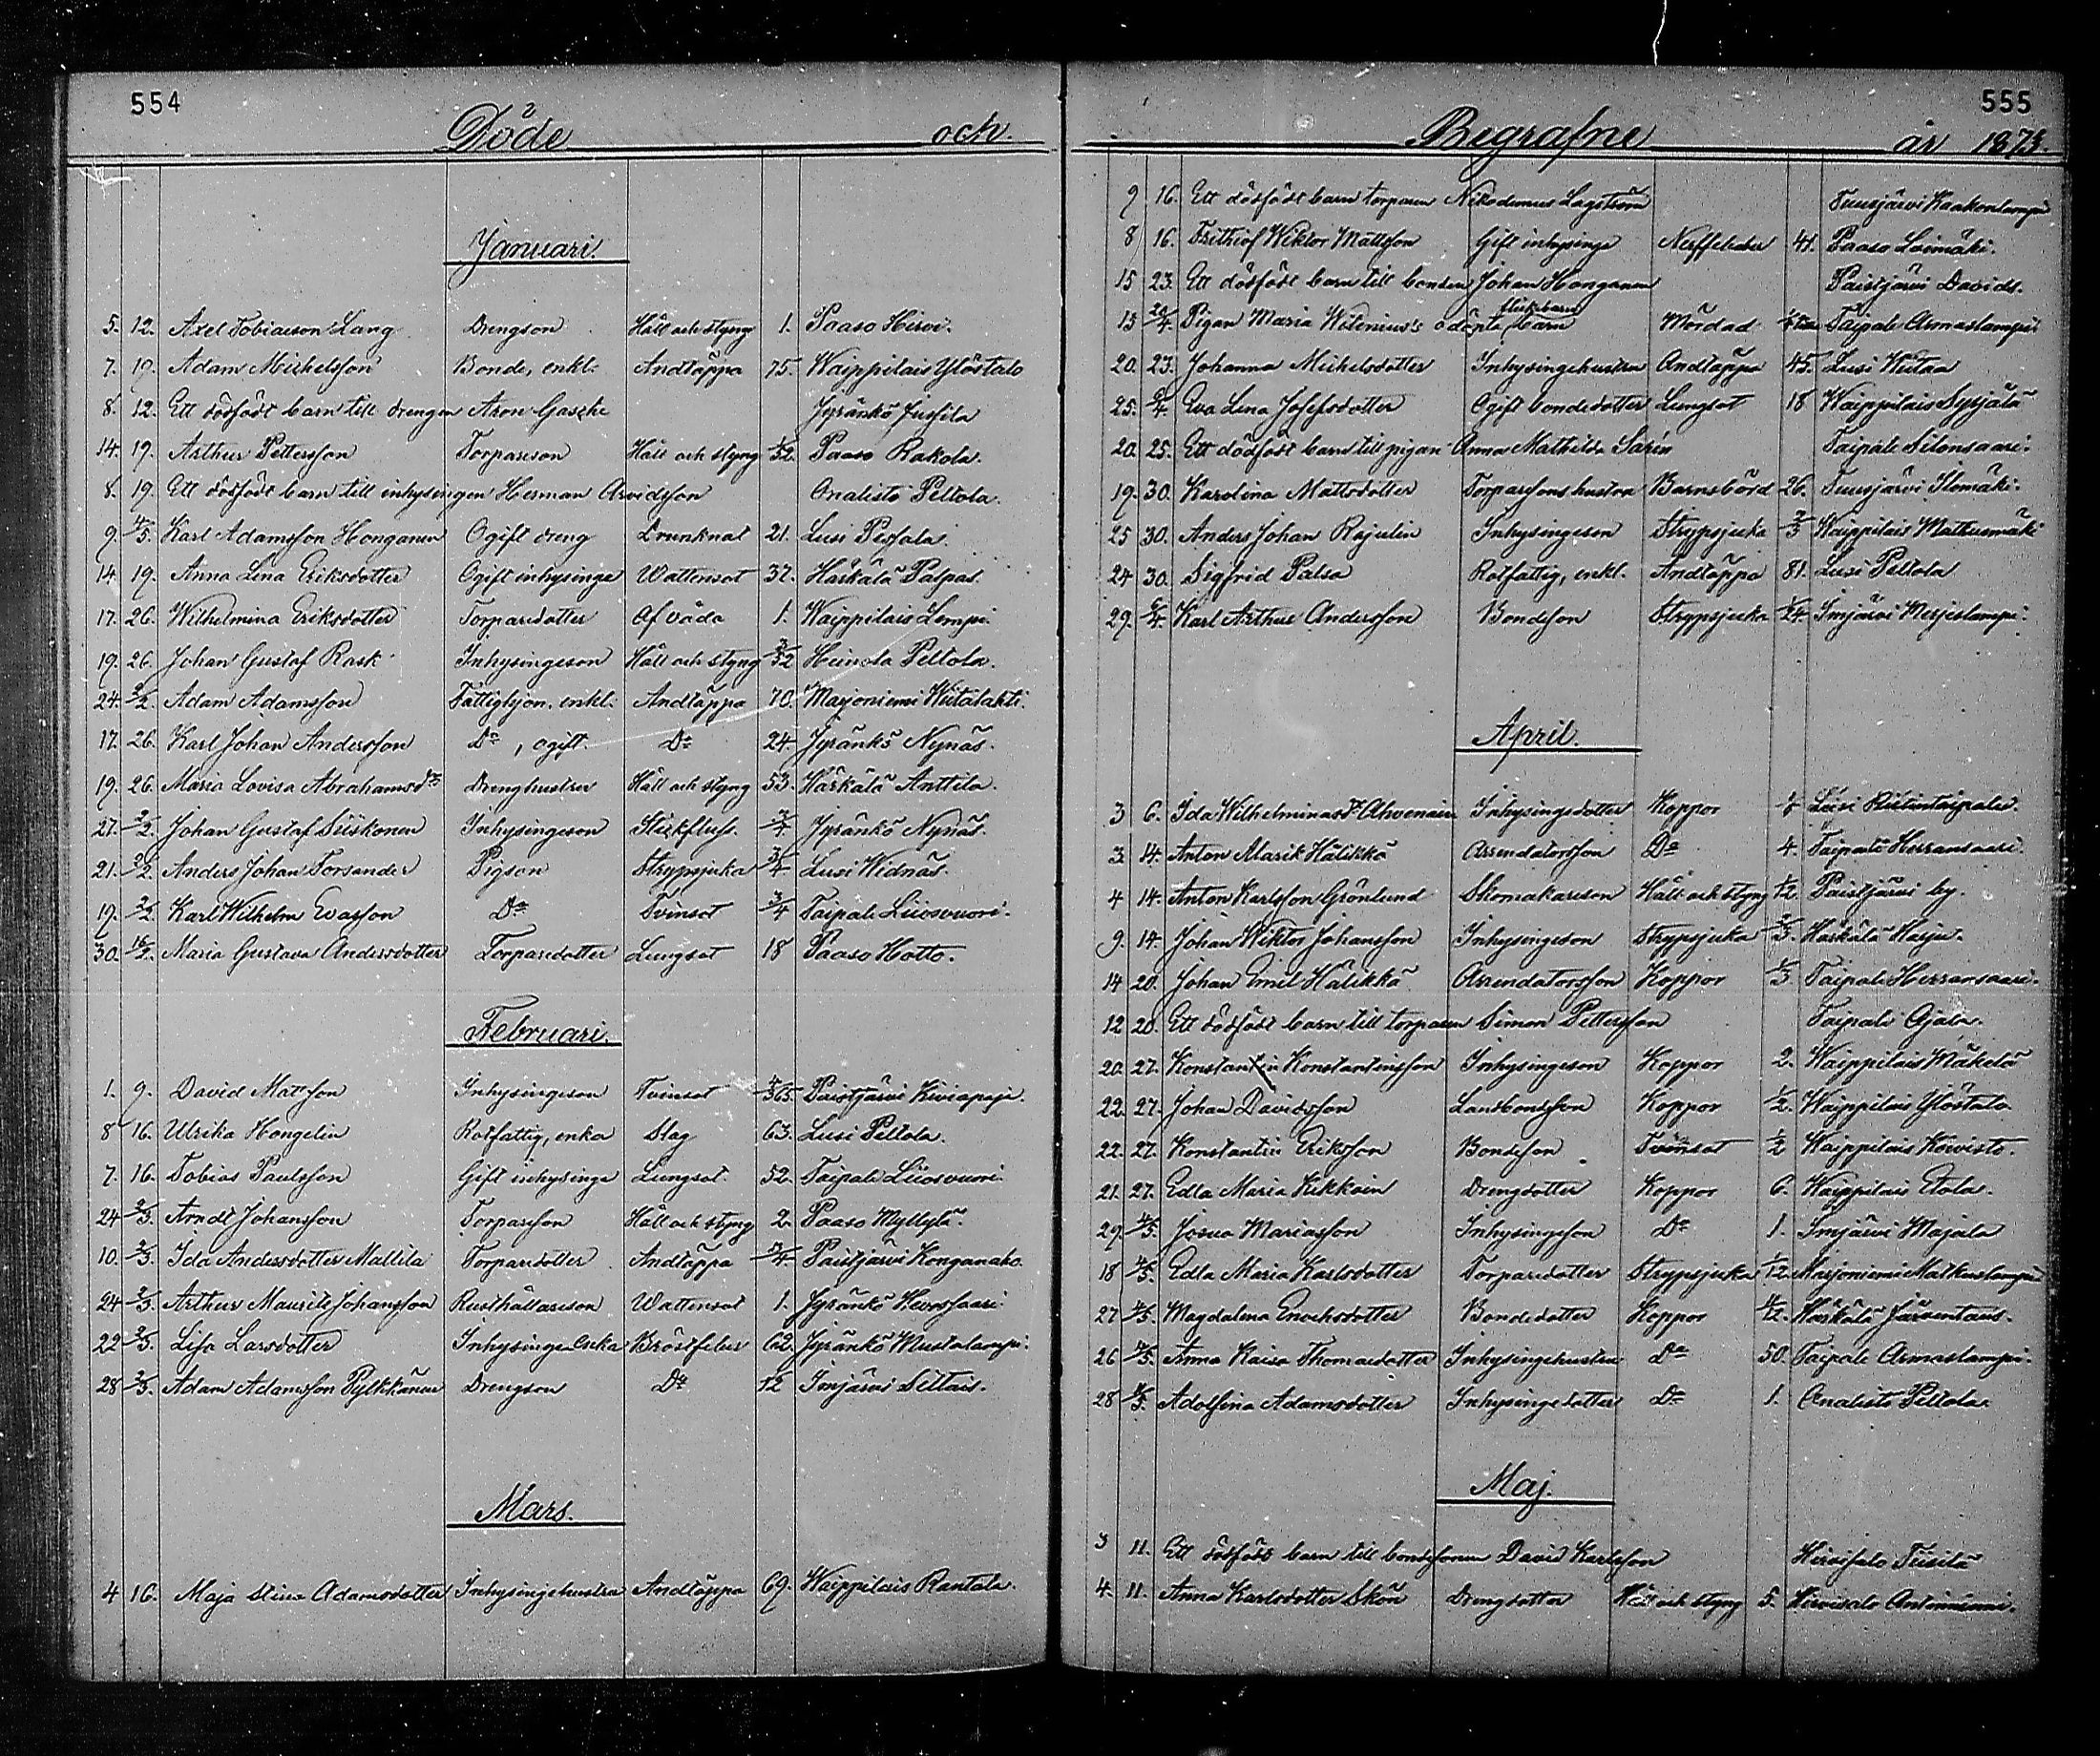 554
Döde och
Januari.
5. 12. Axel Tobiaeson Lang Drengson Håll och styng 1. Paaso Hirvi.
7. 19. Adam Michelsson Bonde, enkl. Andtäppa 75. Waippilais Ylöstalo
8. 12. Ett dödfödt barn till drengen Aron Gasche Jyränkö Jussila
14. 19. Arthur Pettersson Torpareson Håll och styng 1/52 Paaso Rakola.
8. 19. Ett dödfödt barn till inhysingen Herman Arvidsson Onalisto Peltola.
9. 4/5. Karl Adamsson Honganen Ogift dreng Drunknat 21. Lusi
14. 19. Anna Lina Eriksdotter Ogift inhysinge Wattensot 37. Härkälä
17. 26. Wilhelmina Eriksdotter Torparedotter Af våda 1. Waippilais Lempi.
19. 26. Johan Gustaf Rask Inhysingeson Håll och styng 3/52 Heinola Peltola.
24. 2/2. Adam Adamsson Fattighjon, enkl. Andtäppa 70. Marjoniemi Wiitalahti.
17. 26. Karl Johan Andersson Do, ogift. Do 24. Jyränkö Nynäs.
19. 26. Maria Lovisa Abrahamsdr Drenghustru Håll och styng 53. Härkälä Anttila.
27. 2/2. Johan Gustaf Siiskonen Inhysingeson Stickfluss. 3/4 Jyränkö Nynäs.
21. 2/2. Anders Johan Forsander Pigson Strypsjuka 3/4 Lusi Widnäs.
19. 2/2. Karl Wilhelm Evasson Do Tvinsot 3/4 Taipale Liiosvuori.
30. 16/2. Maria Gustava Andersdotter Torparedotter Lungsot 18 Paaso Hotto.
Februari.
1. 9. David Matsson Inhysingeson Tvinsot 4/365. Paistjärvi Kiviapaja.
8 16. Ulrika Hongelin Rotfattig, enka Slag 63. Lusi Peltola.
7. 16. Tobias Paulsson Gift inhysinge Lungsot. 52. Taipale Liiosvuori.
24 2/3. Arndt Johansson Torpareson Håll och styng 2. Paaso Myllylä.
10. 2/3. Ida Andersdotter Mattila Torparedotter Andtäppa 3/4. Paistjärvi Konganaho.
24 2/3. Arthur Maurits Johansson Rusthållareson Wattensot 1. Jyränkö
22 2/3. Lisa Larsdotter Inhysinge enka Bröstfeber 62. Jyränkö Mustalampi.
28 2/3. Adam Adamsson Pylkkänen Drengson Do 12 Imjärvi Seltais.
Mars.
4 16. Maja Stina Adamsdotter Inhysingehustru Andtäppa 69. Waippilais Rantala.
555
Begrafne år 1873.
9 16. Ett dödfödt barn torparen Nikodemus Lagström Tuusjärvi Kaakonlampi
8 16. Frithiof Wiktor Mattsson Gift inhysinge Nerffeber 41. Paaso Loimäki.
15 23. Ett dödfödt barn till bonden Johan Honganen Paistjärvi Davids.
13 Pigan Maria Wilenius's odöpta flickebarn barn Mördad Taipale Armaslampi
20. 23. Johanna Michelsdotter Inhysingehustru Andtäppa 45. Lusi Wiitaa
25. 6/4. Eva Lena Josefsdotter Ogift bondedotter Lungsot 18 Waippilais Sysjälä
20. 25. Ett dödfödt barn till pigan Anna Mathilda Sarin Taipale Silonsaari.
19. 30. Karolina Mattsdotter Torparsons hustru Barnsbörd 26. Tuusjärvi Ilomäki.
25 30. Anders Johan Rajulin Inhysingeson Strypsjuka 2/3 Waippilais Matkusmäki
24 30. Sigfrid Palsa Rotfattig, enkl. Andtäppa 81. Lusi Peltola
29. 6/4. Karl Arthur Andersson Bondeson Strypsjuka 1/24. Imjärvi
April.
3 6. Ida Wilhelminasdr Ahvenain Inhysingedotter Koppor Lusi
3 14. Anton Marik Hälikkä Arrendatorsson Do 4. Taipale Herransaari.
4 14. Anton Karlsson Grönlund Skomakareson Håll och styng 1/12. Paistjärvi by.
9. 14. Johan Wiktor Johansson Inhysingeson Strypsjuka 2/3. Härkälä Harju.
14 20. Johan Emil Hälikkä Arrendatorsson Koppor 1/3 Taipale Herransaari.
12 20. Ett dödfödt barn till torparen Simon Pettersson Taipale Ojala.
20. 27. Konstantin Konstantinsson Inhysingeson Koppor 2. Waippilais Mäkelä
22. 27. Johan Davidsson Landbondsson Koppor 1/2. Waippilais Ylöstalo
22. 27. Konstantin Eriksson Bondeson Tvinsot 1/2 Waippilais Koivisto.
21. 27. Edla Maria Kikkain Drengdotter Koppor 6. Waippilais Etola.
29. 4/5. Josua Mariasson Inhysingeson Do 1. Imjärvi Majala
18 4/5. Edla Maria Karlsdotter Torparedotter Strypsjuka 1/12. Marjoniemi Matkuslampi
27 4/5. Magdalena Enochsdotter Bondedotter Koppor 4/12. Härkälä
26 4/5. Anna Kaisa Thomasdotter Inhysingehustru Do 50. Taipale Armaslampi.
28 4/5. Adolfina Adamsdotter Inhysingedotter Do 1. Onalisto Peltola.
Maj.
3 11. Ett dödfödt barn till bondesonen David Karlsson Hirvisalo
4. 11. Anna Karlsdotter Skön Drengdotter Håll och styng 5. Hirvisalo Antinniemi.